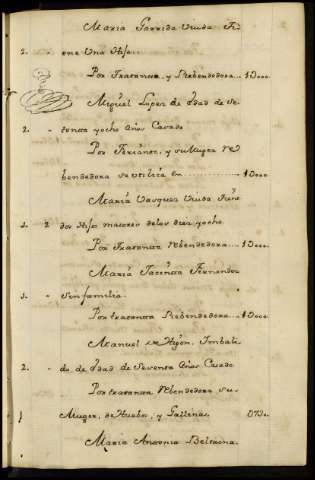 Maria Garrida Viuda Ti
2. - ene Una Hija.
Por Tratanta, y Rebendedora... 1000.
Miguel Lopez de edad de Se
2. - tenta y ocho años Casado
Por y su Muger Re
bendedora se utiliza en 1000.
Maria Vasquez Viuda tiene
2. 2 dos Hijos maiores de los diez y ocho
Por Tratanta Rebendedora... 1000.
Maria Jacinta Fernandez
1. - Sin familia.
Por tratanta Rebendedora... 1000.
Manuel de Imbali
2. - do, de edad de Sesenta años Casado
Por tratanta Rebendedora su
Muger, de Huebos, y Gallinas
Maria Antonia Beltrana.